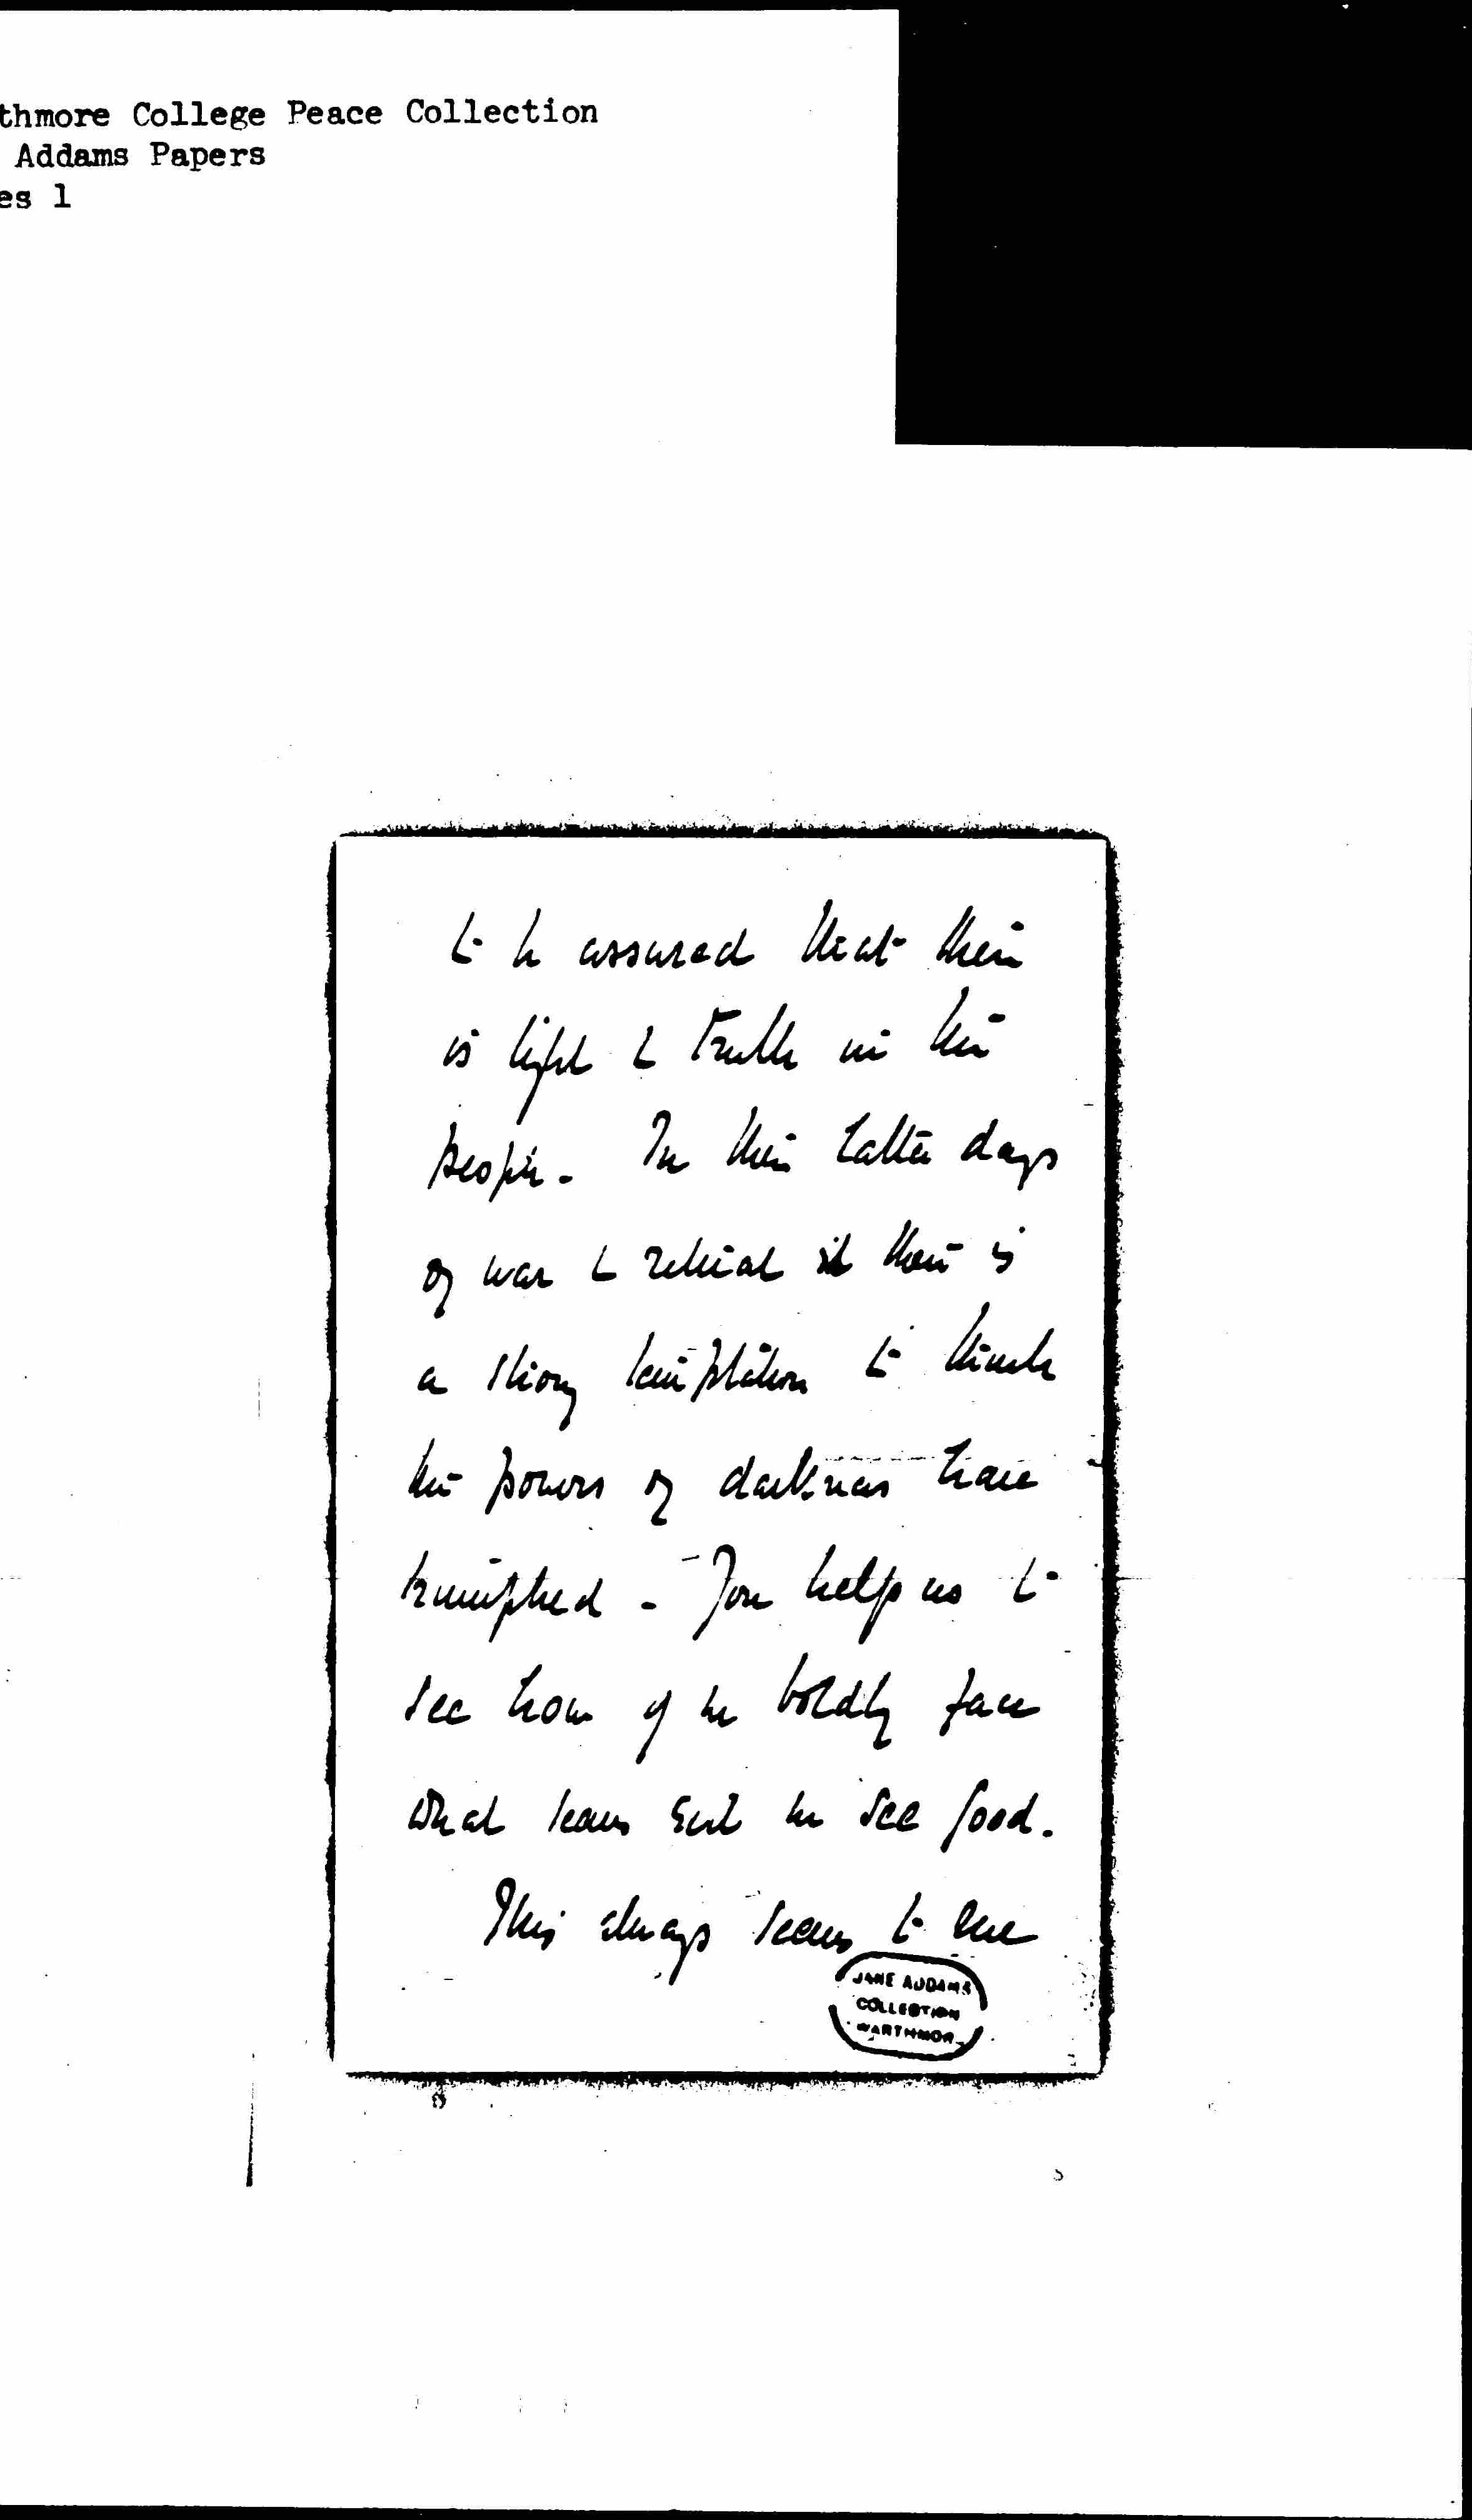 thmore College Peace Collection
Addams Papers
es 1
to be assured that there
is light & truth in the
people. In these latter days
of war & retreat it there is
a strong temptation to think
the powers of darkness have
triumphed - You help us to
see how if we boldly face
what seems evil we see good.
This always seems to me
JANE ADDAMS
COLLECTION
WARTHMOR